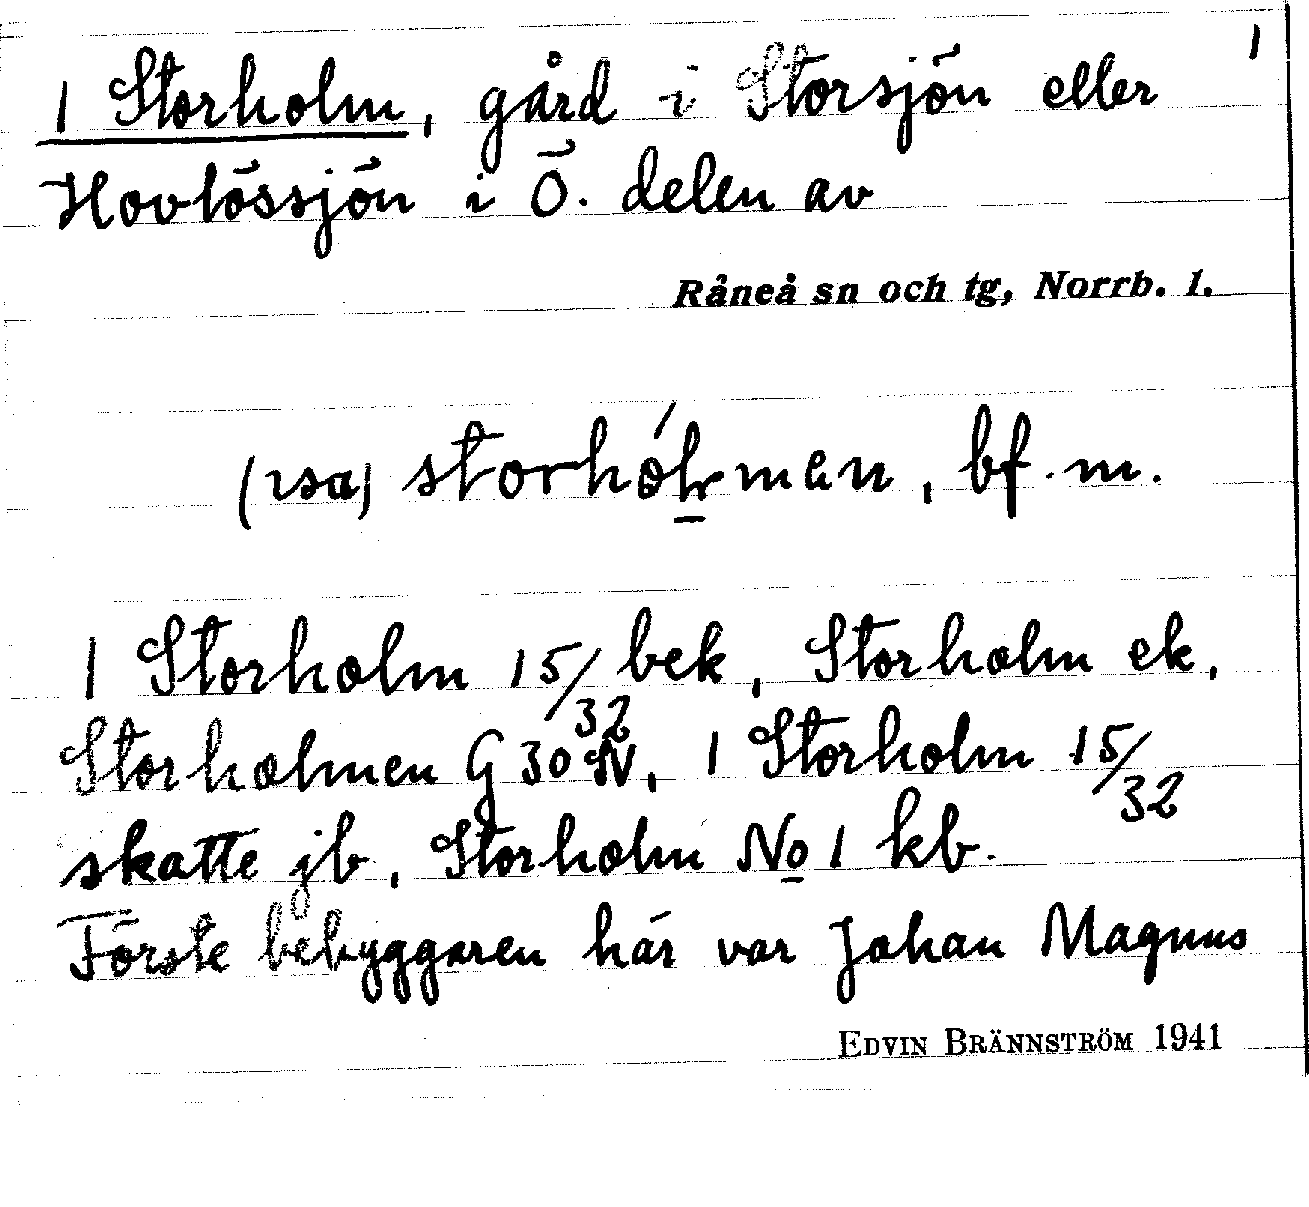 1
1 Storholm, gård i Storsjön eller
Hovlössjön i Ö. delen av
Råneå sn och tg, Norrb. l.
(isa) storhólmen, bf. m.
1 Storholm 15/32 bek, Storholm ek,
Storholmen G 30 SV, 1 Storholm 15/32
skatte jb, Storholm No 1 kb.
Förste bebyggaren här var Johan Magnus
EDVIN BRÄNNSTRÖM 1941